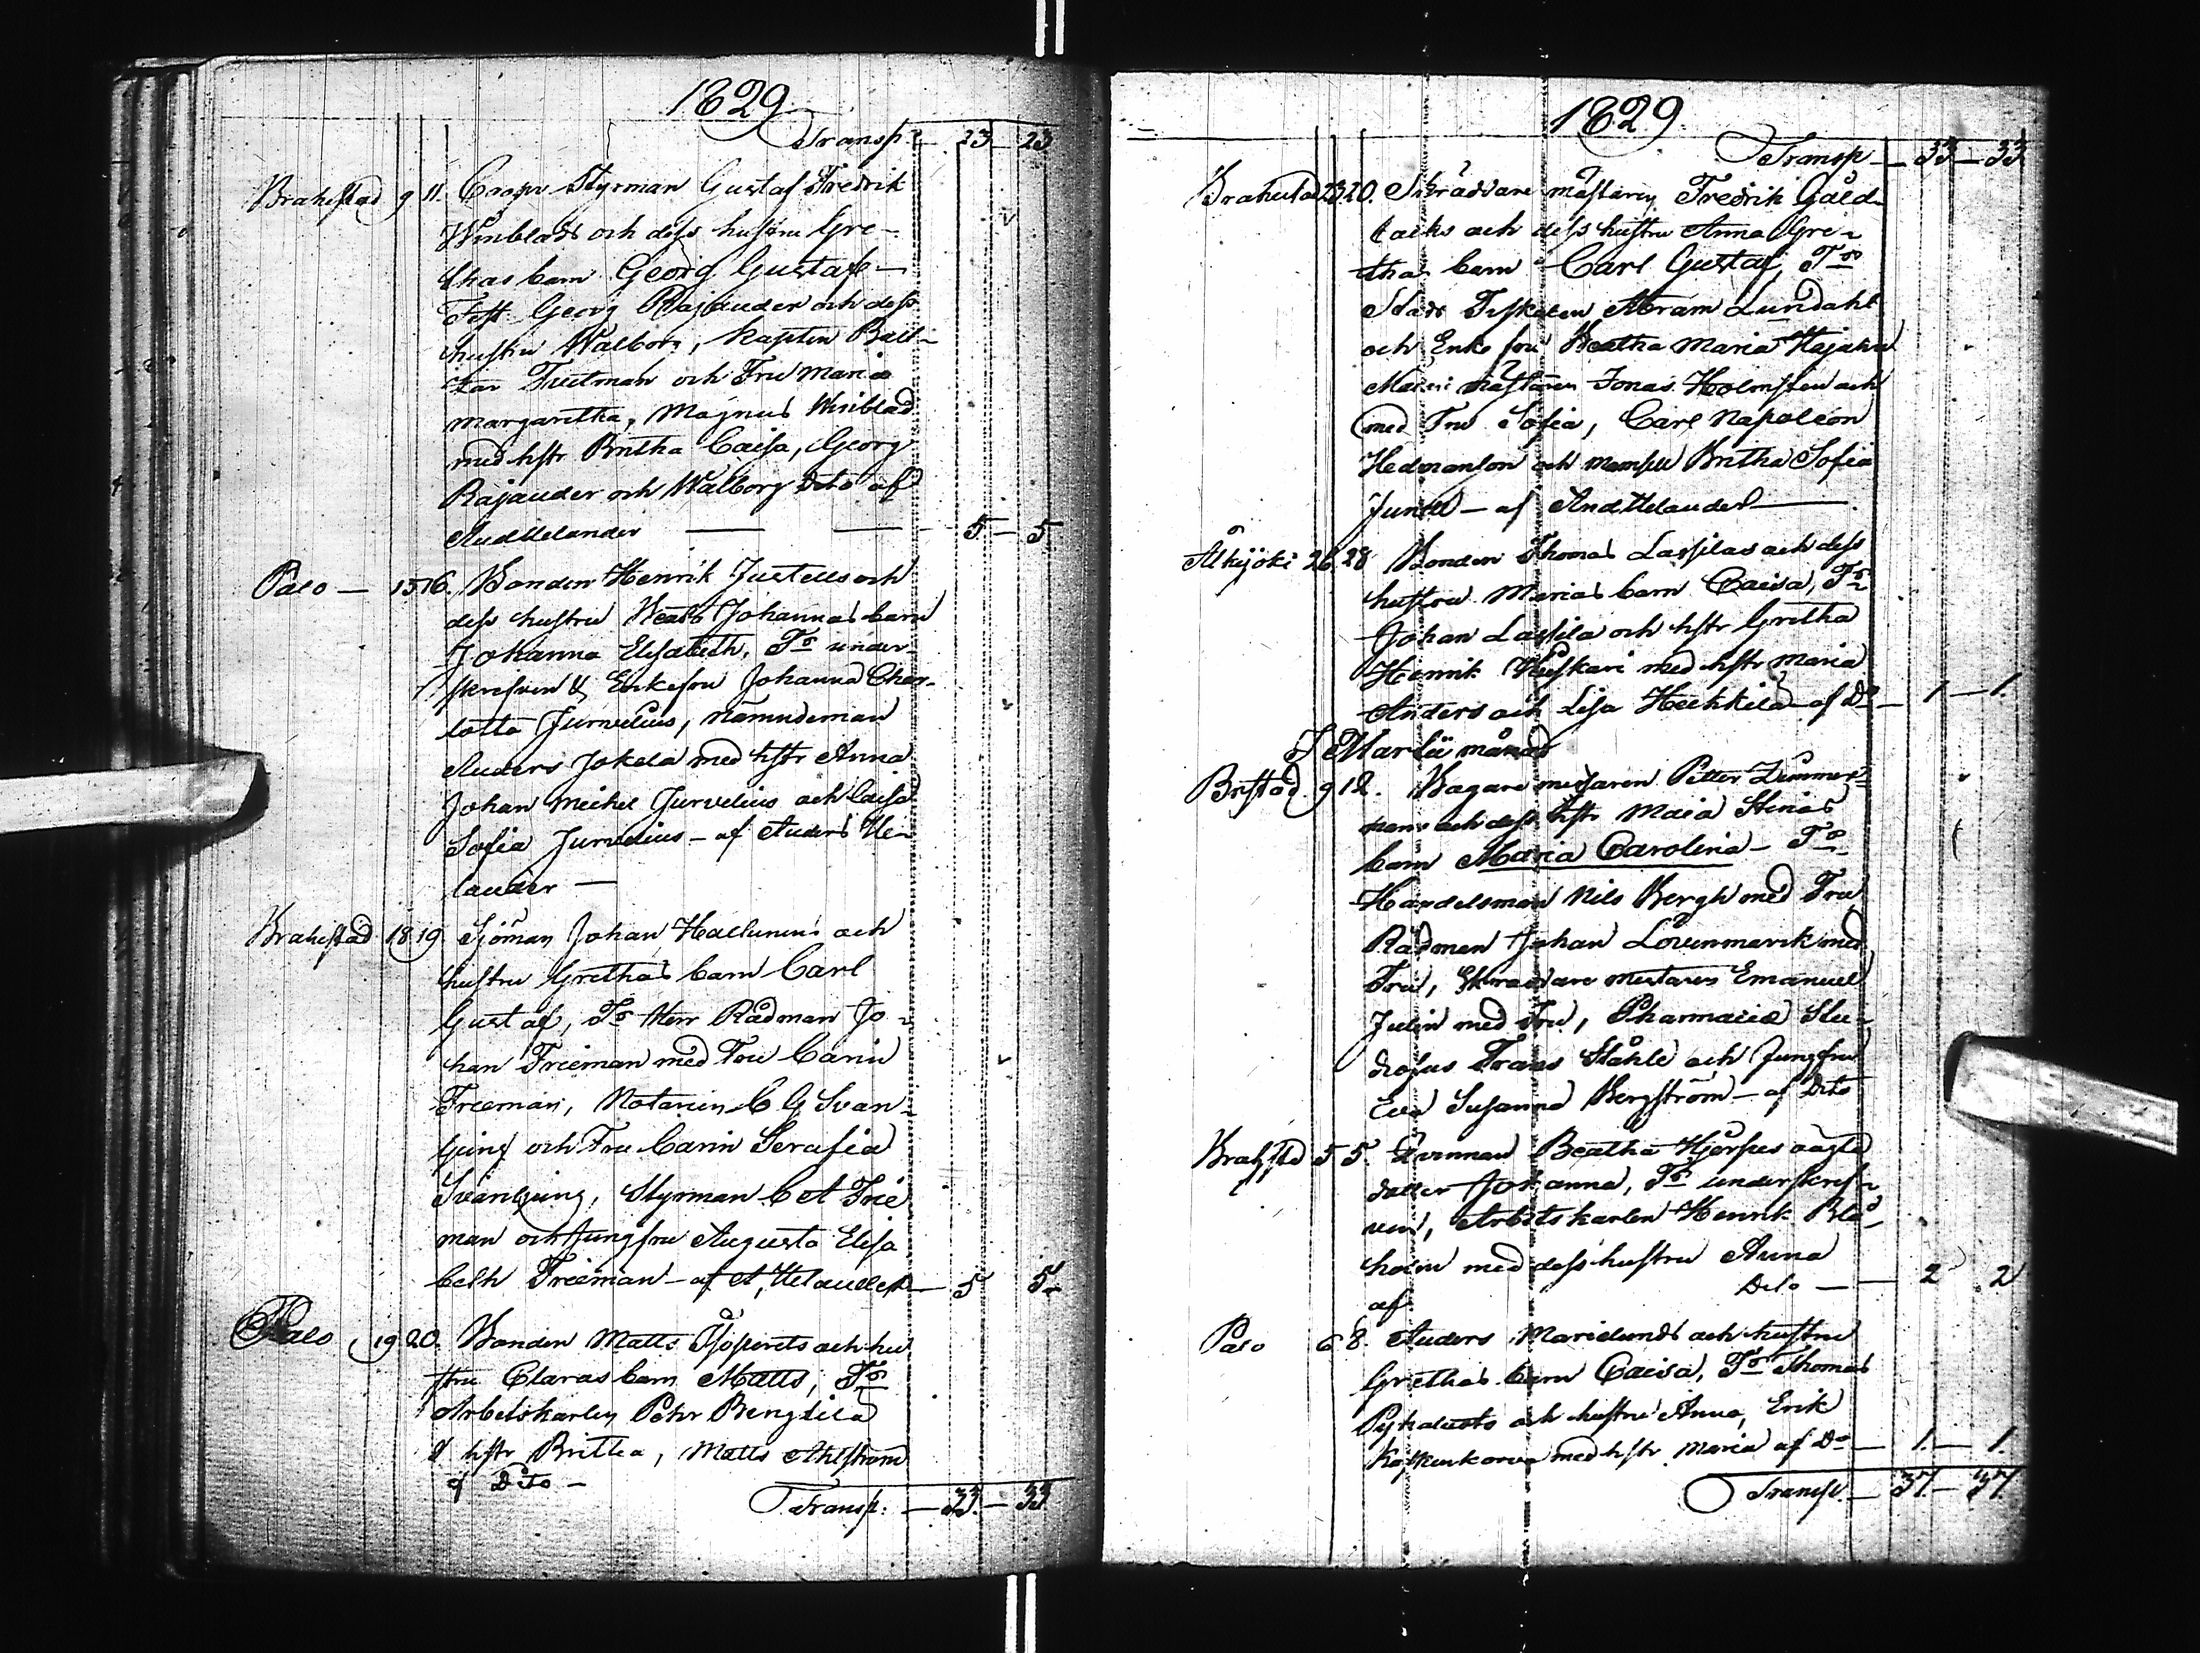 1829
Transp. 23 — 23
Brahestad 9 11. Coopv. Styrman Gustaf Fredrik
Winblads och dess hustru Gre-
thas barn Georg Gustaf —
Test Georg Rajander och dess
hustru Walborg, Kapten Balt-
zar Freitman och Fru Maria
Margaretha, Magnus Winblad
med hstr Britha Caisa, Georg
Rajander och Walborg Dito af
And Helander — — 5 — 5
Palo — 15 16. Bonden Henrik Justells och
dess hustru Beata Johannas barn
Johanna Elisabeth, Ts under-
skrefven & Enkefru Johanna Char-
lotta Jurvelius, nämndeman
Anders Jokela med hstr Anna
Johan Michel Jurvelius och Caisa
Sofia Jurvelius — af Anders He-
lander —
Brahestad 18 19 Sjöman Johan Hallunens och
hustru Grethas barn Carl
Gustaf, Ts Herr Rådman Jo-
han Frieman med Fru Carin
Freeman, Notarien C G Svan-
ljung och Fru Carin Serafia
Svanljung, Styrman C A Frie
man och Jungfru Augusta Elisa
beth Freeman — af A, Helander — 5 5
Palo 19 20. Bonden Matts och hu
stru Claras barn Matts, Ts
Arbetskarlen Petr Bengtila
& hstr Britha, Matts Ahlström
af Dito —
Transp. — 33 — 33
1829
Transp — 33 — 33
Brahestad 23 20. Skräddare mästaren Fredrik Gåld-
backs och dess hustru Anna Gre-
tha barn Carl Gustaf, Ts
Stads Fiskalen Abram Lundahl
och Enke fru Beatha Maria
mästaren Jonas Holmsten och
med Fru Sofia, Carl Napoleon
Hedmanson och mamsell Britha Sofia
Junell — af And Helander —
Alkijoki 26 28 Bonden Thomas Lassilas och dess
hustru Marias barn Caisa, Ts
Johan Lassila och hstr Gretha
Henrik med hstr Maria
Anders och Lisa Heikkilä af Do — 1 — 1.
I Martii månad
Brstad 9 12. Bagare mästaren Petter Zimmer-
mans och dess hstr Maia Stinas
barn Maria Carolina — Ts
Handelsman Nils Bergh med Fru,
Rådman Johan Lövenmarck med
Fru, Skräddare mästaren Emanuel
Julin med Fru, Pharmaciæ Stu-
diosus Frans Ståhle och Jungfru
Eva Susanna Bergström — af Dito
Brahestd 5 5. Qvinnan Beatha Hjerpes oägta
dotter Johanna, Ts underskref-
ven, Arbetskarlen Henrik Blå-
holm med dess hustru Anna
af Dito — 2 2
Palo 6 8. Anders Marielunds och hustru
Grethas barn Caisa, Ts Thomas
och hustru Anna, Erik
med hstr Maria af Do — 1. — 1.
Transp. — 37 — 37.